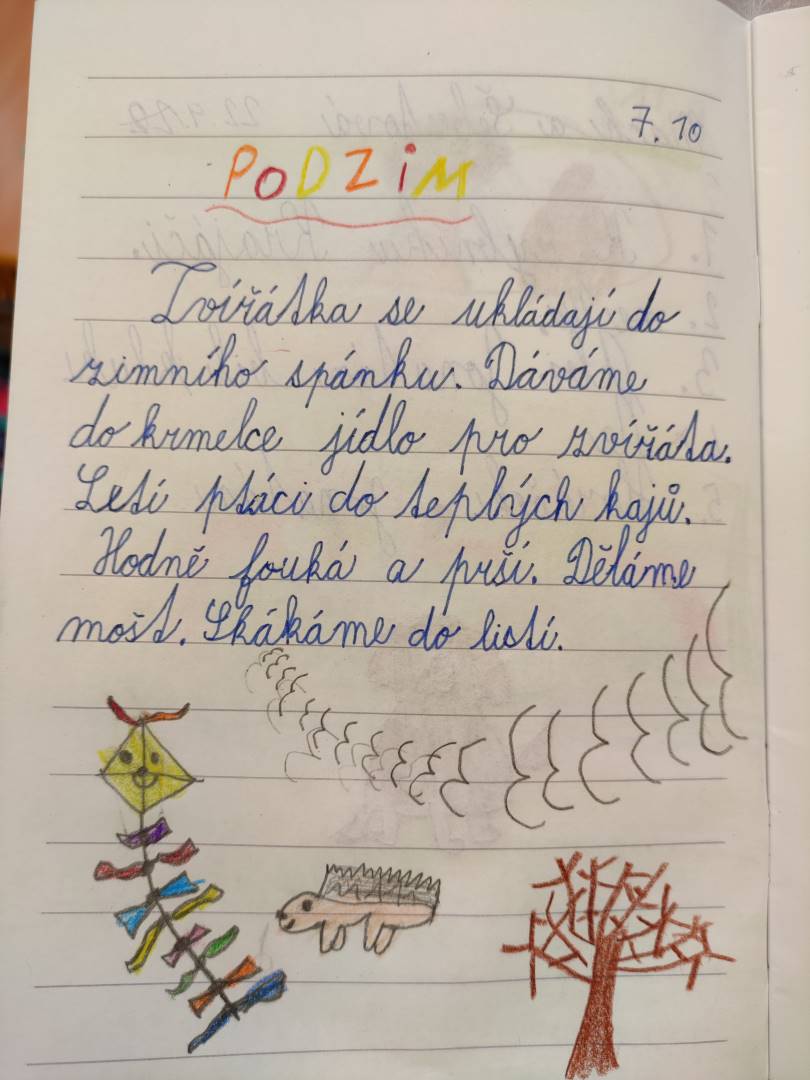 7. 10
PODZIM
Zvířátka se ukládají do
zimního spánku. Dáváme
do krmelce jídlo pro zvířáta.
Letí ptáci do teplých kajů.
Hodně fouká a prší. Děláme
mošt. Skákáme do listí.